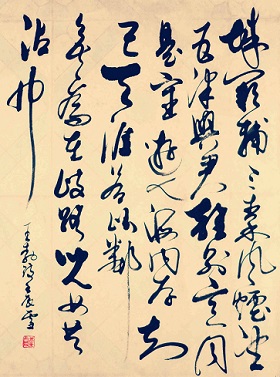 城闕輔三秦風煙望
五津與君離別意同
是宦遊人海內存知
己天涯若比鄰
無為在歧路兒女共
沾巾
王勃詩壬辰雪